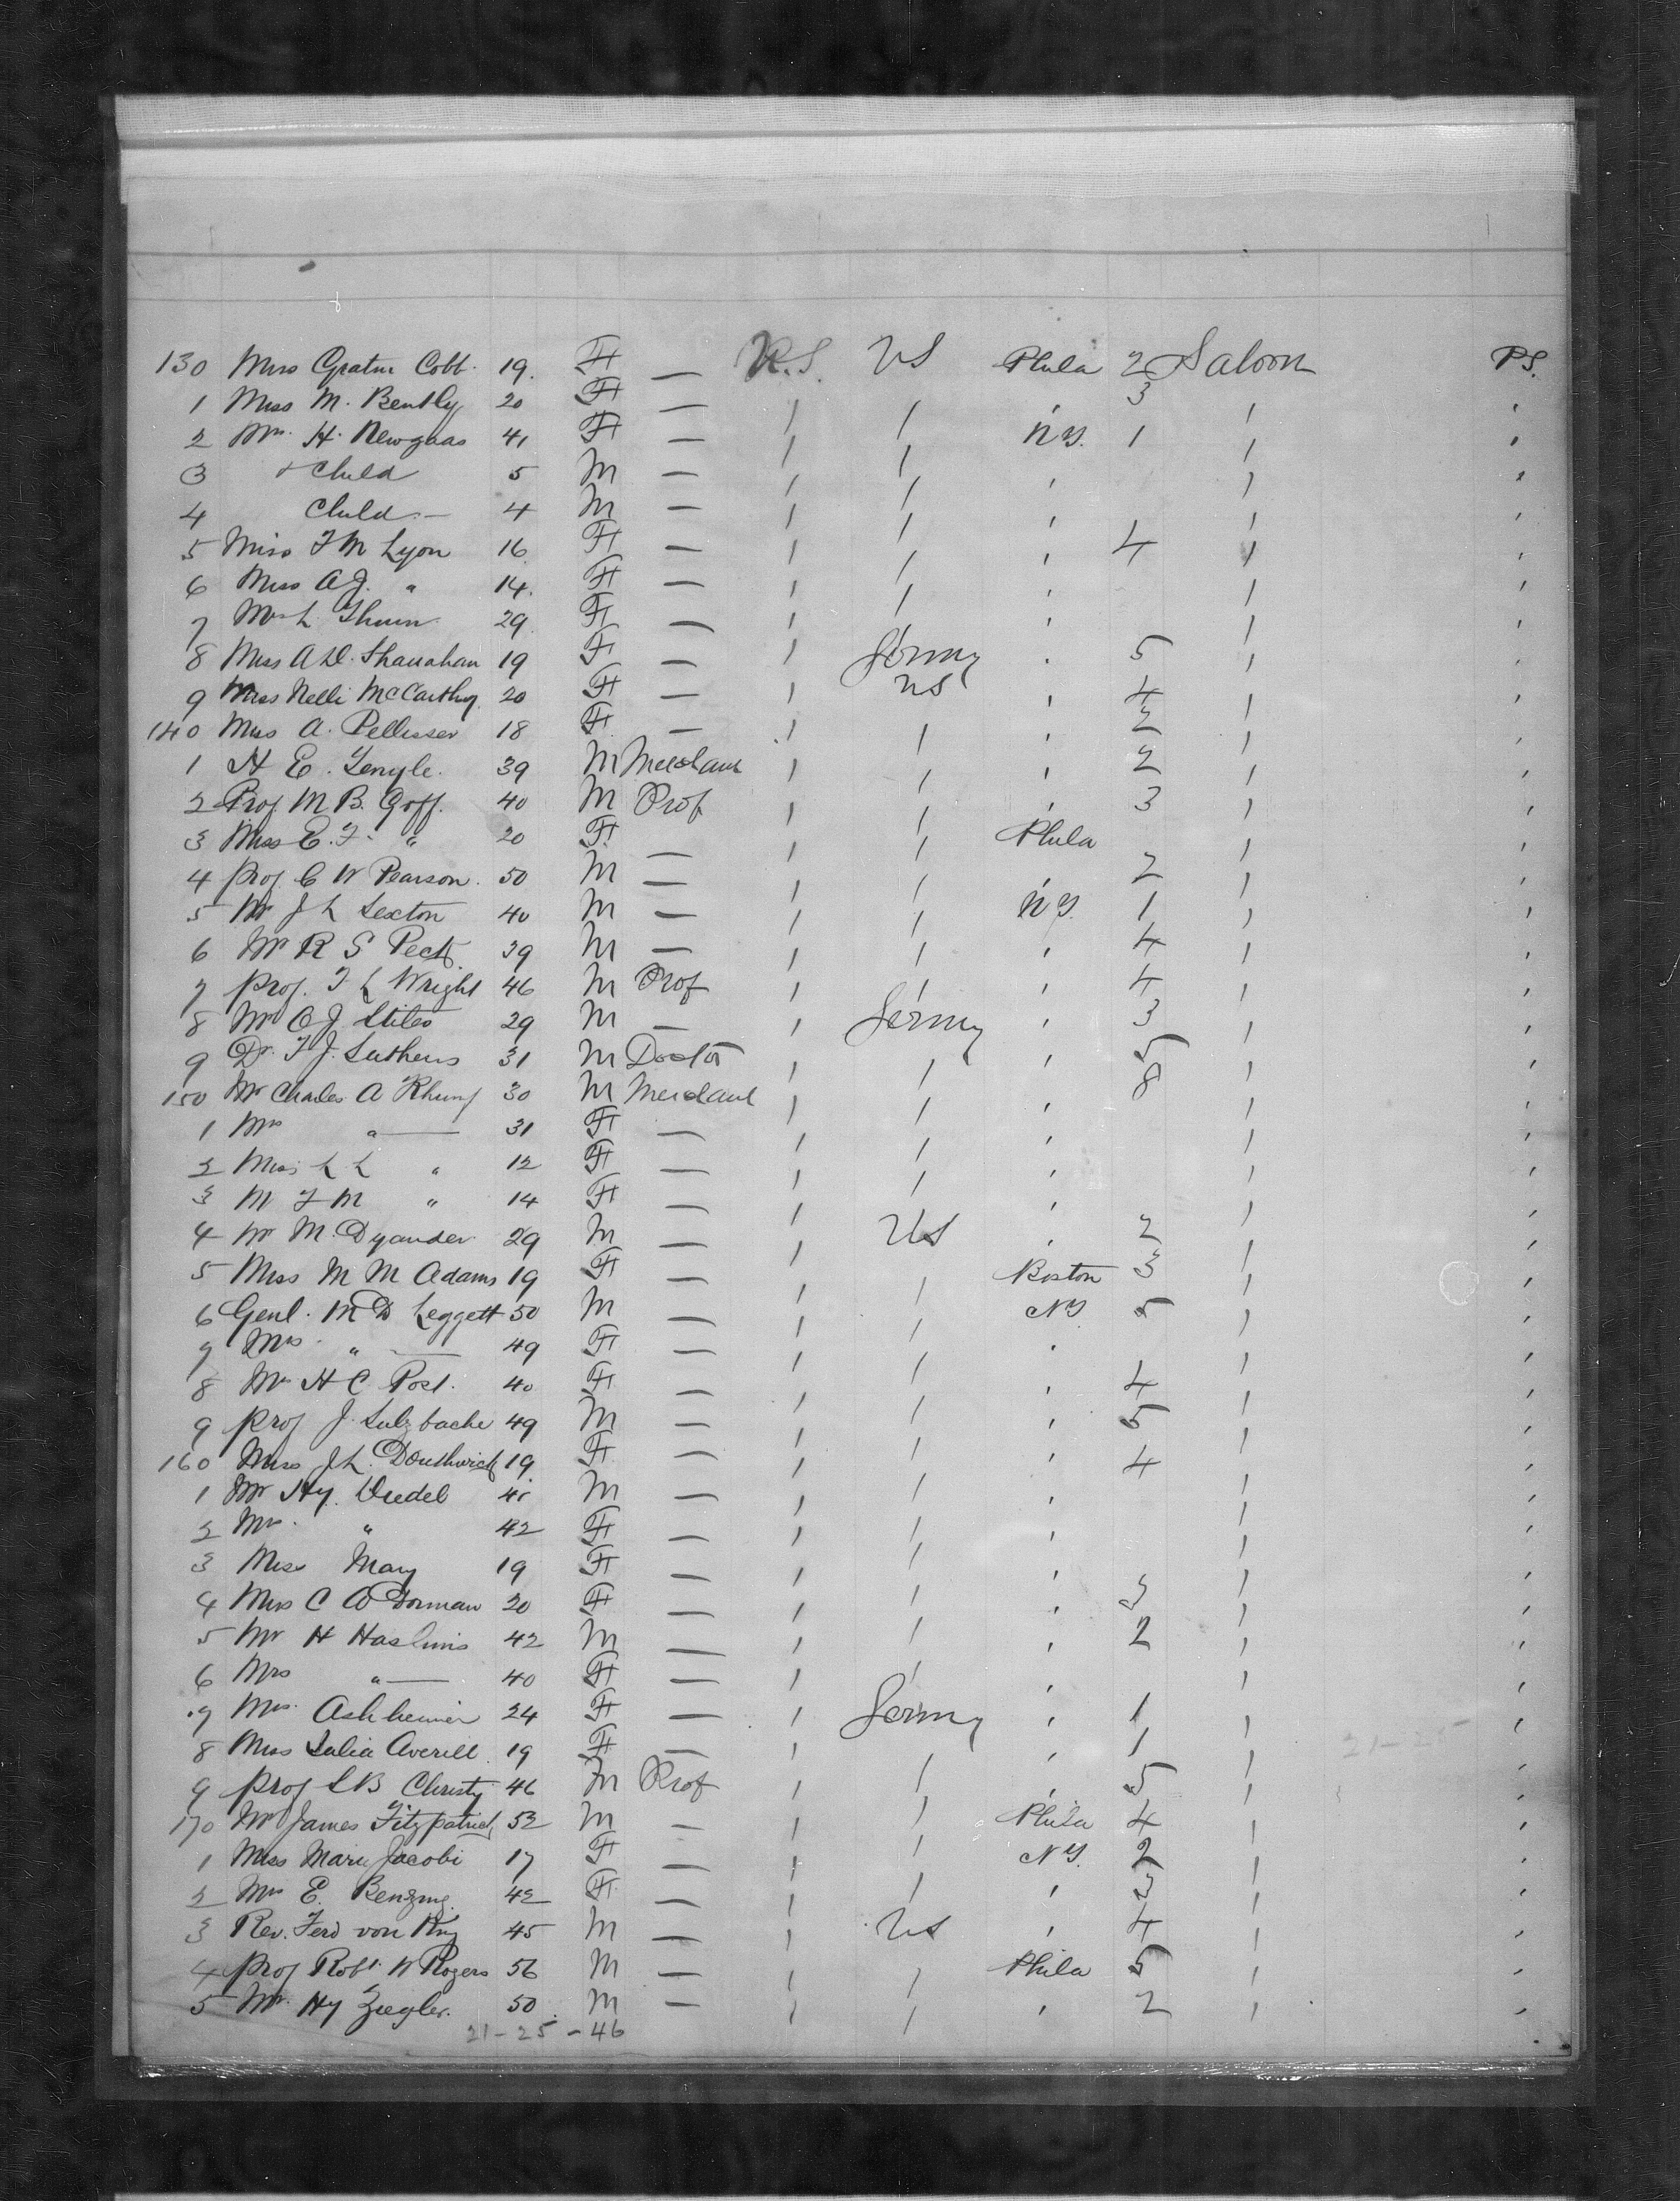 130 Miss Cobb. 19. F — U.S. US Phila 2 Saloon P.S.
1 Miss M. Bently 20 F — / / ' 3 / '
2 Mrs. H. Newgaas 41 F — / / N.Y. 1 / '
3 + Child 5 M — / / ' / '
4 Child — 4 M — / / ' / '
5 Miss F M Lyon 16 F — / / ' 4 / '
6 Miss A J. " 14. F — / / ' / '
7 Mrs L. 29 F — / / ' / '
8 Miss A D. Shanahan 19 F — / Germy ' 5 / '
9 Miss Nelli McCarthy 20 F — / US ' 4 / '
140 Miss A. Pellisser 18 F — / / ' 2 / '
1 H E. 39 M Merchant / / ' 2 / '
2 Prof M B. Goff. 40 M Prof / / ' 3 / '
3 Miss E. F. " 20 F. — / / Phila / '
4 Prof. C W Pearson. 50 M — / / ' 2 / '
5 Mr J L Sexton 40 M — / / N.Y. 1 / '
6 Mr R S Peck 39 M — / / ' 4 / '
7 Prof. F L Wright 46 M Prof / / ' 4 / '
8 Mr O J. Stiles 29 M — / Germy ' 3 / '
9 Dr. F J. Suthens 31 M Doctor / / ' 5 / '
150 Mr Charles A 30 M Merchant / / ' 8 / '
1 Mrs " — 31 F — / / ' / '
2 Miss L L " 12 F — / / ' / '
3 M F M " 14 F — / / ' / '
4 Mr M. Dyander 29 M — / US ' 2 / '
5 Miss M M Adams 19 F — / / Boston 3 / '
6 Genl. M D Leggett 50 M — / / NY. 5 / '
7 Mrs. " — 49 F — / / ' / '
8 Mr H C. Post. 40 F — / / ' 4 / '
9 Prof J. Sulzbache 49 M — / / ' 5 / '
160 Miss J L. Douthwick 19 F — / / ' 4 / '
1 Mr Hy. 41 M — / / ' / '
2 Mrs. " 42 F — / / ' / '
3 Miss Mary 19 F — / / ' / '
4 Miss C A Dorman 20 F — / / ' 3 / '
5 Mr H Haskins 42 M — / / ' 2 / '
6 Mrs " — 40 F — / / ' / '
7 Mrs. Ashheimer 24 F — / Germy ' 1 / '
8 Miss Julia Averill 19 F — / / ' 1 / '
9 Prof S B Christy 46 M Prof / / ' 5 / '
170 Mr James Fitzpatrick 52 M — / / Phila 4 / '
1 Miss Marie Jacobi 17 F — / / NY. 2 / '
2 Mrs E. Benzing 42 F. — / / ' 3 / '
3 Rev. Ferd von 45 M — / US ' 4 / '
4 Prof Robt. W Rogers 56 M — / / Phila 5 / '
5 Mr. Hy Ziegler. 50. M — / / ' 2 / '
21-25-46